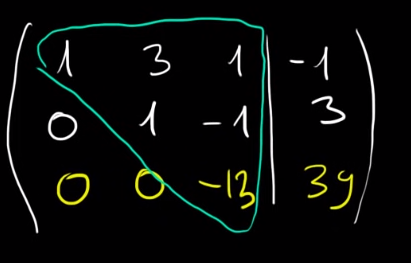 1 3 1 | -1
0 1 -1 | 3
0 0 -13 | 39